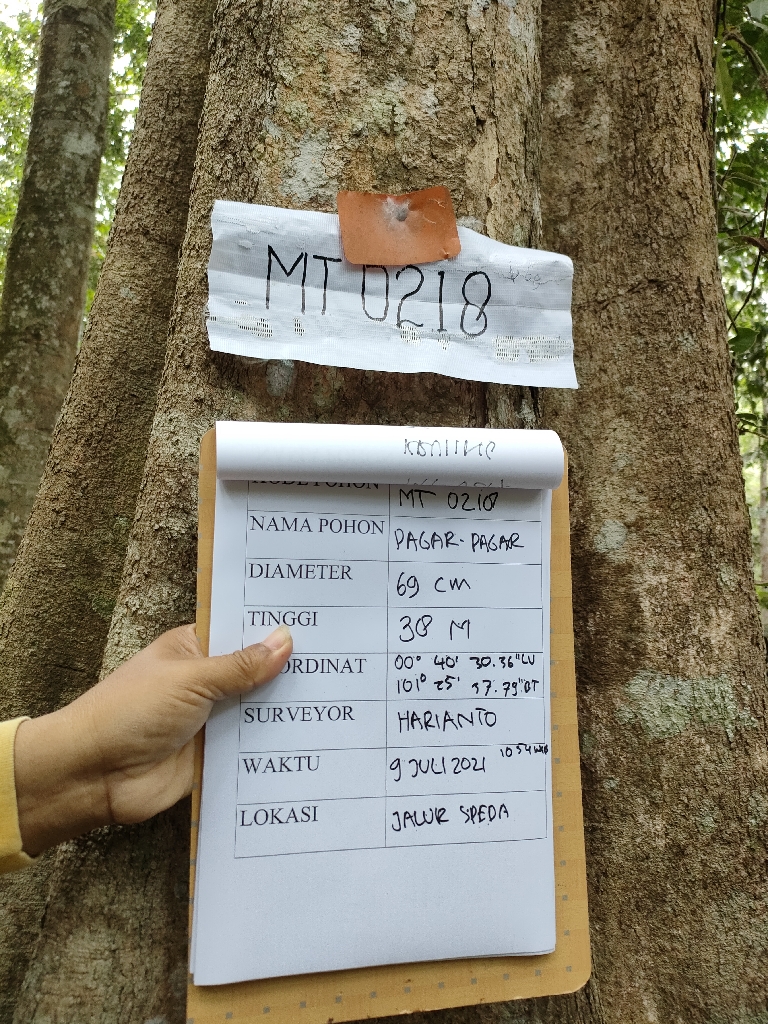 MT 0218
KODE POHON MT 0218
NAMA POHON PAGAR-PAGAR
DIAMETER 69 CM
TINGGI 38 M
ORDINAT 00° 40' 30.36" LU
101° 25' 37.79" BT
SURVEYOR HARIANTO
WAKTU 9 JULI 2021 10 54 WIB
LOKASI JALUR SPEDA